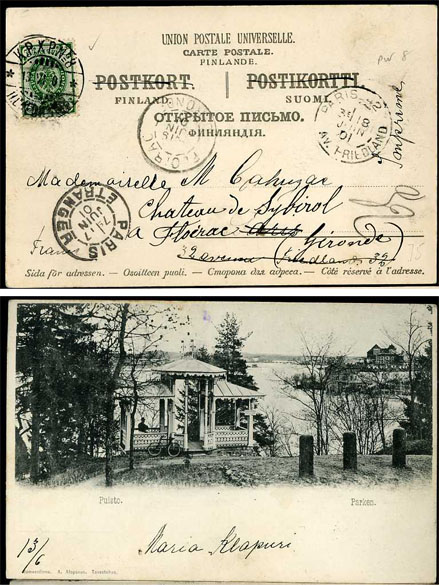 UNION POSTALE UNIVERSELLE.
CARTE POSTALE.
FINLANDE.
POSTKORT. POSTIKORTTI
FINLAND. SUOMI.
ОТКРЫТОЕ ПИСЬМО.
ФИНЛЯНДІЯ.
FLOIRAC
PARIS
18 JUIN 01
AV. FRIEDLAND
PARIS ETRANGER
JUIN 01
Mademoiselle M Cahuzac
Chateau de Sybirol
a Floirac Gironde
32 avenue Friedland 32
Sida för adressen. — Osoitteen puoli. — Сторона для адреса. — Côté réservé à l'adresse.
Puisto. Parken.
13/6 Maria Klapuri